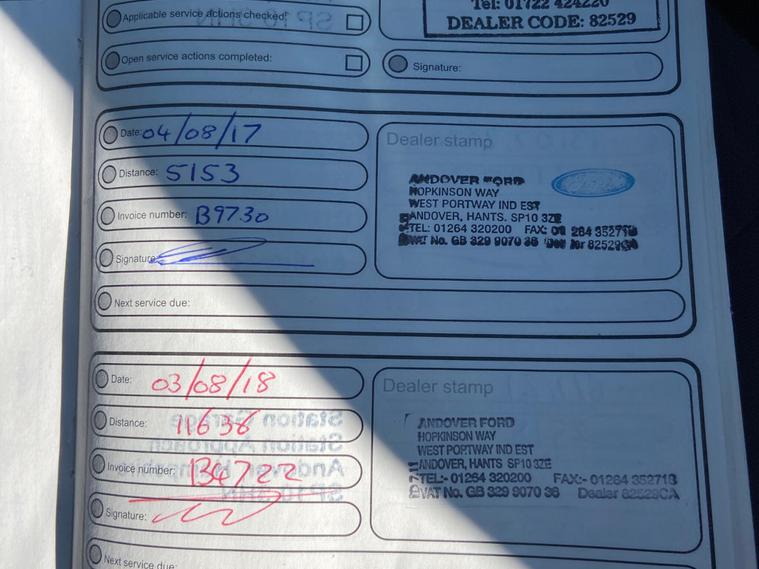 Applicable service actions checked:
Tel: 01722 424220
DEALER CODE: 82529
Open service actions completed:
Signature:
Date: 04/08/17
Distance: 5153
Invoice number: B9730
Signature:
Next service due:
Dealer stamp
ANDOVER FORD
HOPKINSON WAY
WEST PORTWAY IND EST
ANDOVER, HANTS. SP10 3ZE
TEL: 01264 320200 FAX: 01264 352713
VAT No. GB 329 9070 36
Date: 03/08/18
Distance: 11636
Invoice number: B4722
Signature:
Next service due:
Dealer stamp
ANDOVER FORD
HOPKINSON WAY
WEST PORTWAY IND EST
ANDOVER, HANTS SP10 3ZE
TEL:- 01264 320200 FAX:- 01264 352713
VAT No. GB 329 9070 36 Dealer 82529CA
Station Garage
Station Approach